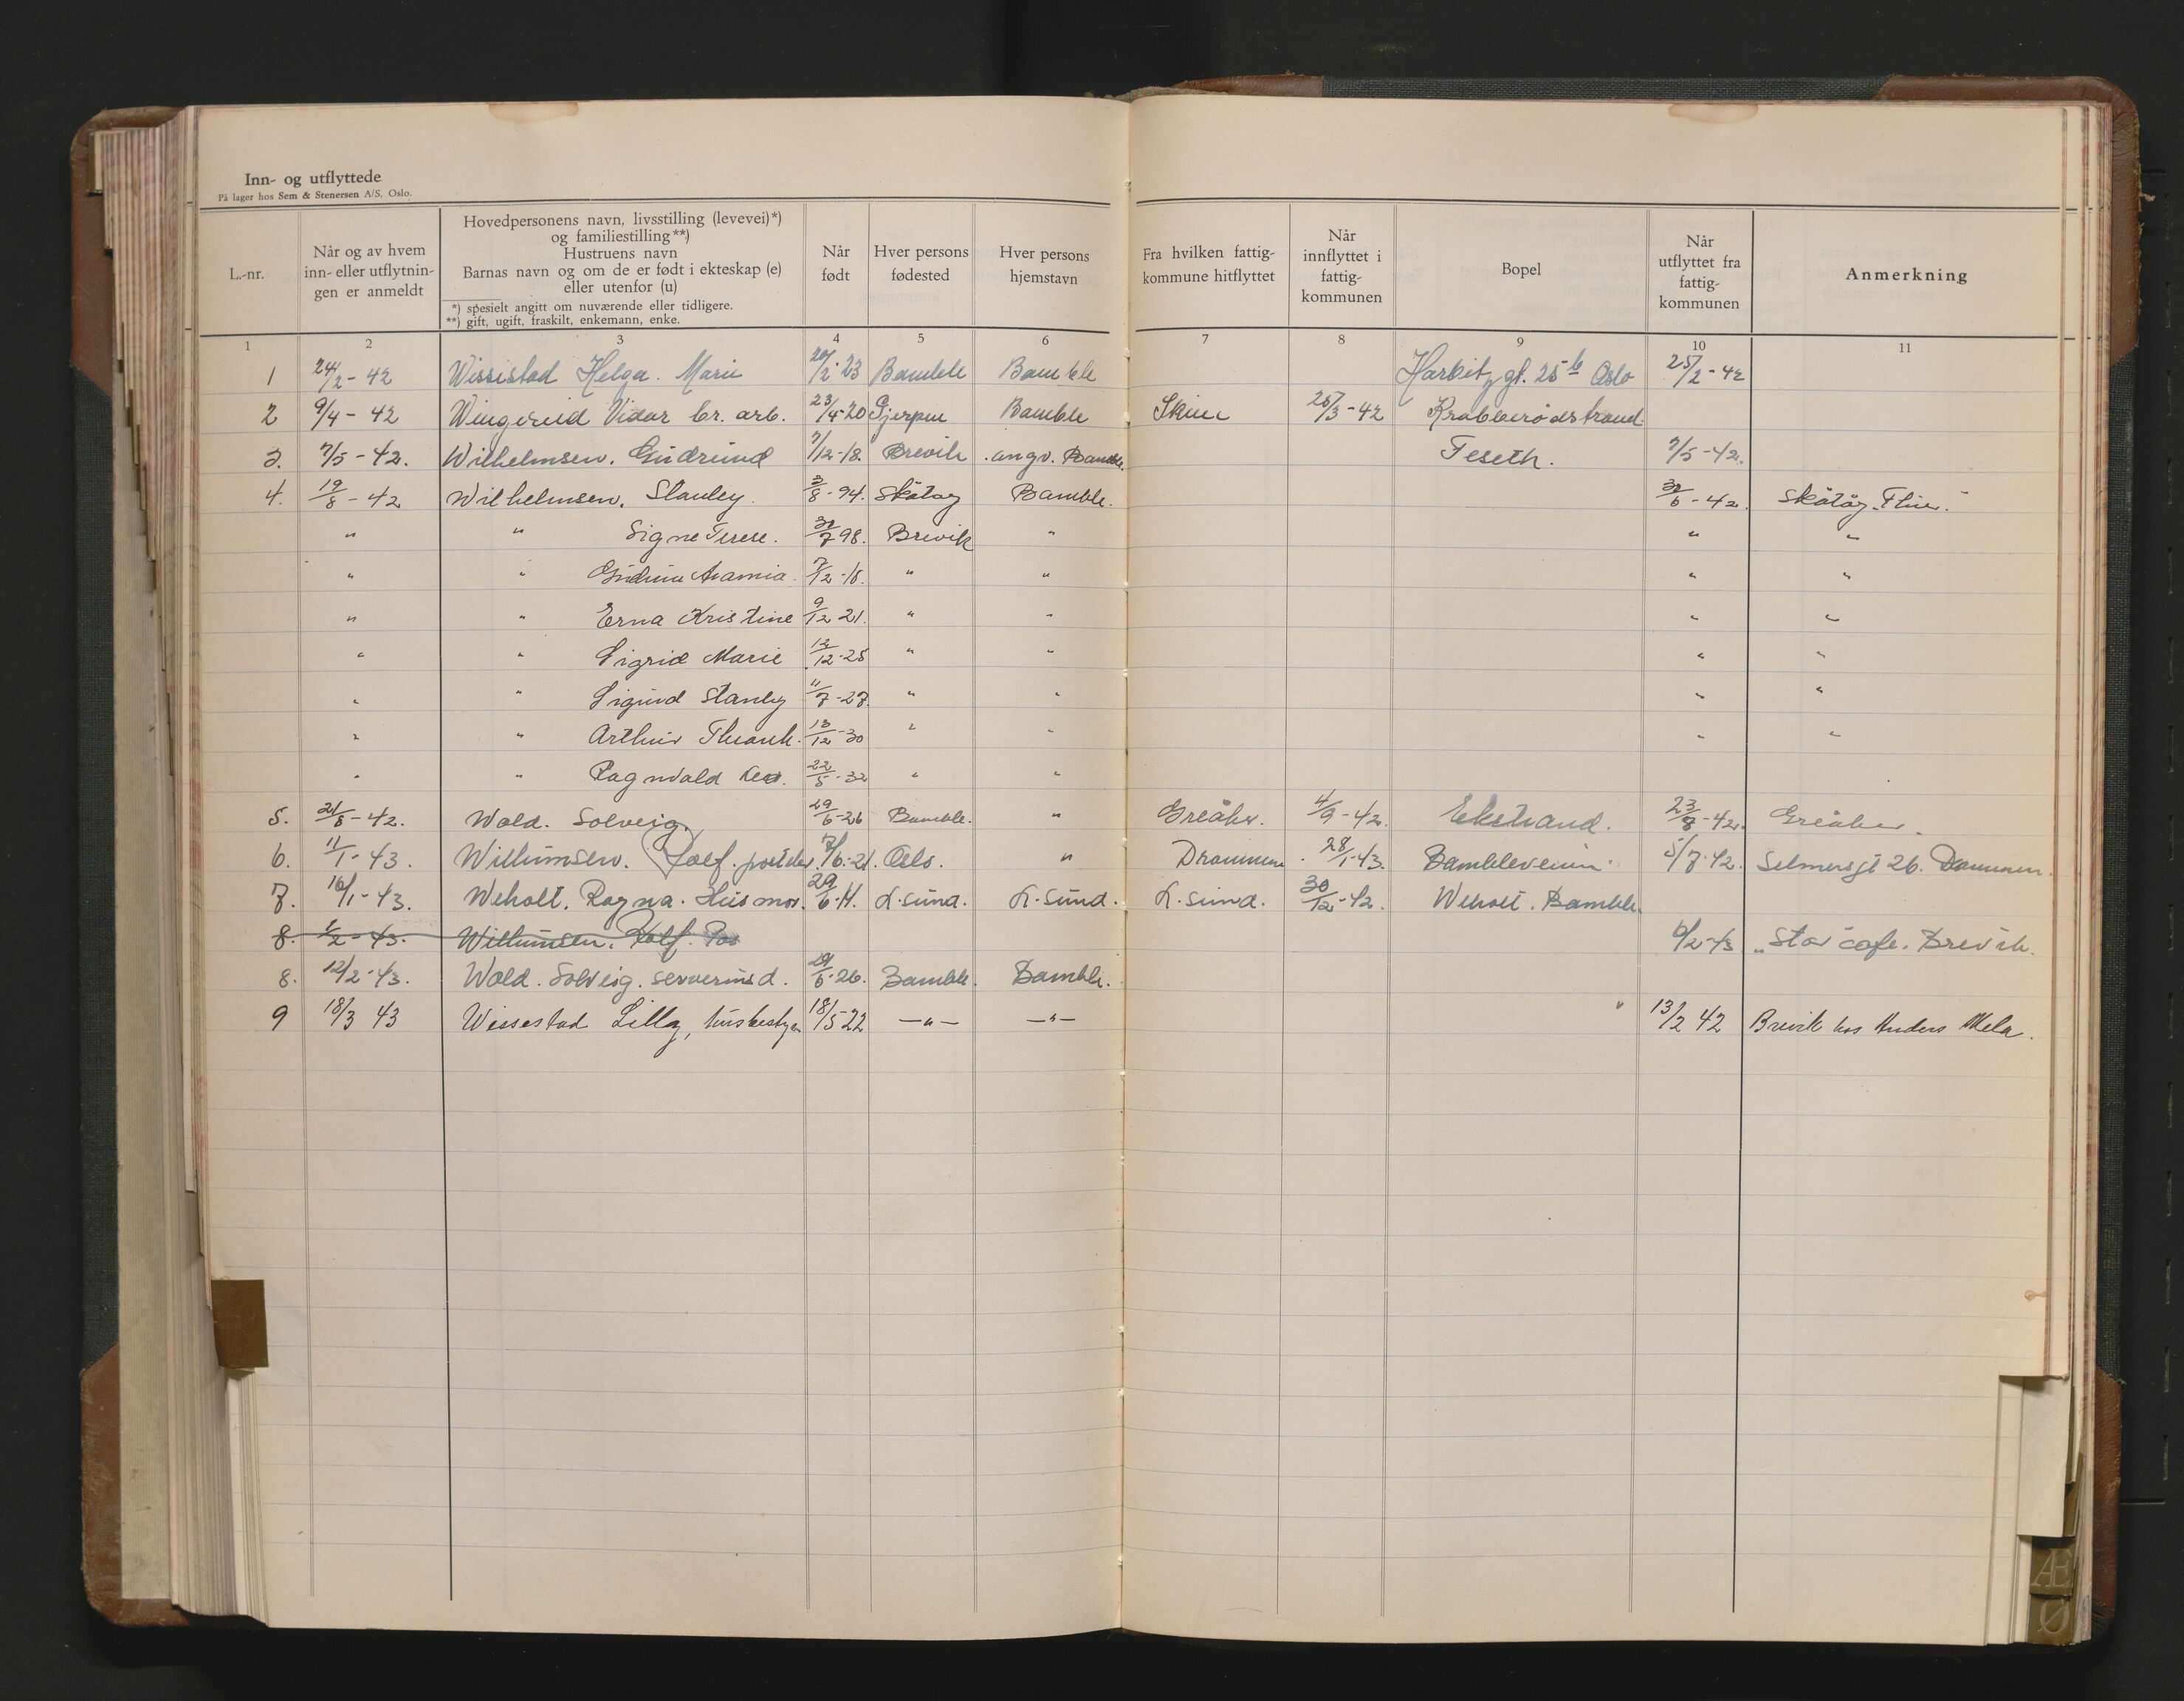 Inn- og utflyttede
På lager hos Sem & Stenersen A/S, Oslo.
L.-nr.
Når og av hvem
inn- eller utflytnin-
gen er anmeldt
Hovedpersonens navn, livsstilling (levevei)*)
og familiestilling**)
Hustruens navn
Barnas navn og om de er født i ekteskap (e)
eller utenfor (u)
*) spesielt angitt om nuværende eller tidligere.
**) gift, ugift, fraskilt, enkemann, enke.
Når
født
Hver persons
fødested
Hver persons
hjemstavn
Fra hvilken fattig-
kommune hitflyttet
Når
innflyttet i
fattig-
kommunen
Bopel
Når
utflyttet fra
fattig-
kommunen
Anmerkning
1 2 3 4 5 6 7 8 9 10 11
1 24/2 - 42 Wissistad Helga. Marie 20/2-23 Bamble Bamble Harbitzgt. 25 b Oslo 25/2-42
2 9/4 - 42 Wingereid Vidar br. arb. 23/4-20 Gjerpen Bamble Skien 25/3-42 Krabberødstrand
3. 7/5 - 42. Wilhelmsen. Gudrund 7/12-18. Brevik .angv. Bamble. Feseth. 7/5-42.
4. 19/8 - 42 Wilhelmsen. Stanley. 3/8-94. Skåtøy Bamble. 30/6-42. Skåtøy
" " Signe Terese. 30/7 98. Brevik " " "
" " 7/12-18. " " " "
" " Erna Kristine 9/12 21. " " " "
" " Sigrid Marie 12/12-25 " " " "
" " Sigurd Stanley 11/7-27. " " " "
" " Arthur 13/12-30 " " " "
" " Ragnvald 22/5-32 " "
5. 21/8-42. Wold. Solveig. 29/6-26 Bamble. " Greåker. 4/9-42. Ekstrand. 23/8-42. Greåker.
6. 11/1-43. Willumsen. Rolf. 7/6-21. Oslo. " Drammen. 28/1-43. Bambleveien 5/7-42. Selmersgt 26. Drammen.
7. 16/1-43. Weholt. Ragna. Husmor. 29/6-11. L.sund. L.sund. L.sund. 30/12-42. Weholt. Bamble.
8. 1/2-43. Willumsen. Rolf. Pos 6/2-43 "Stor" cafe. Brevik.
8. 12/2-43. Wold. Solveig. serverinsd. 29/6-26. Bamble. Bamble.
9 18/3 43 Wessestad Lilly, husbestyr 18/5 22 —"— —"— " 13/2 42 Brevik hos Anders
Æ
Ø